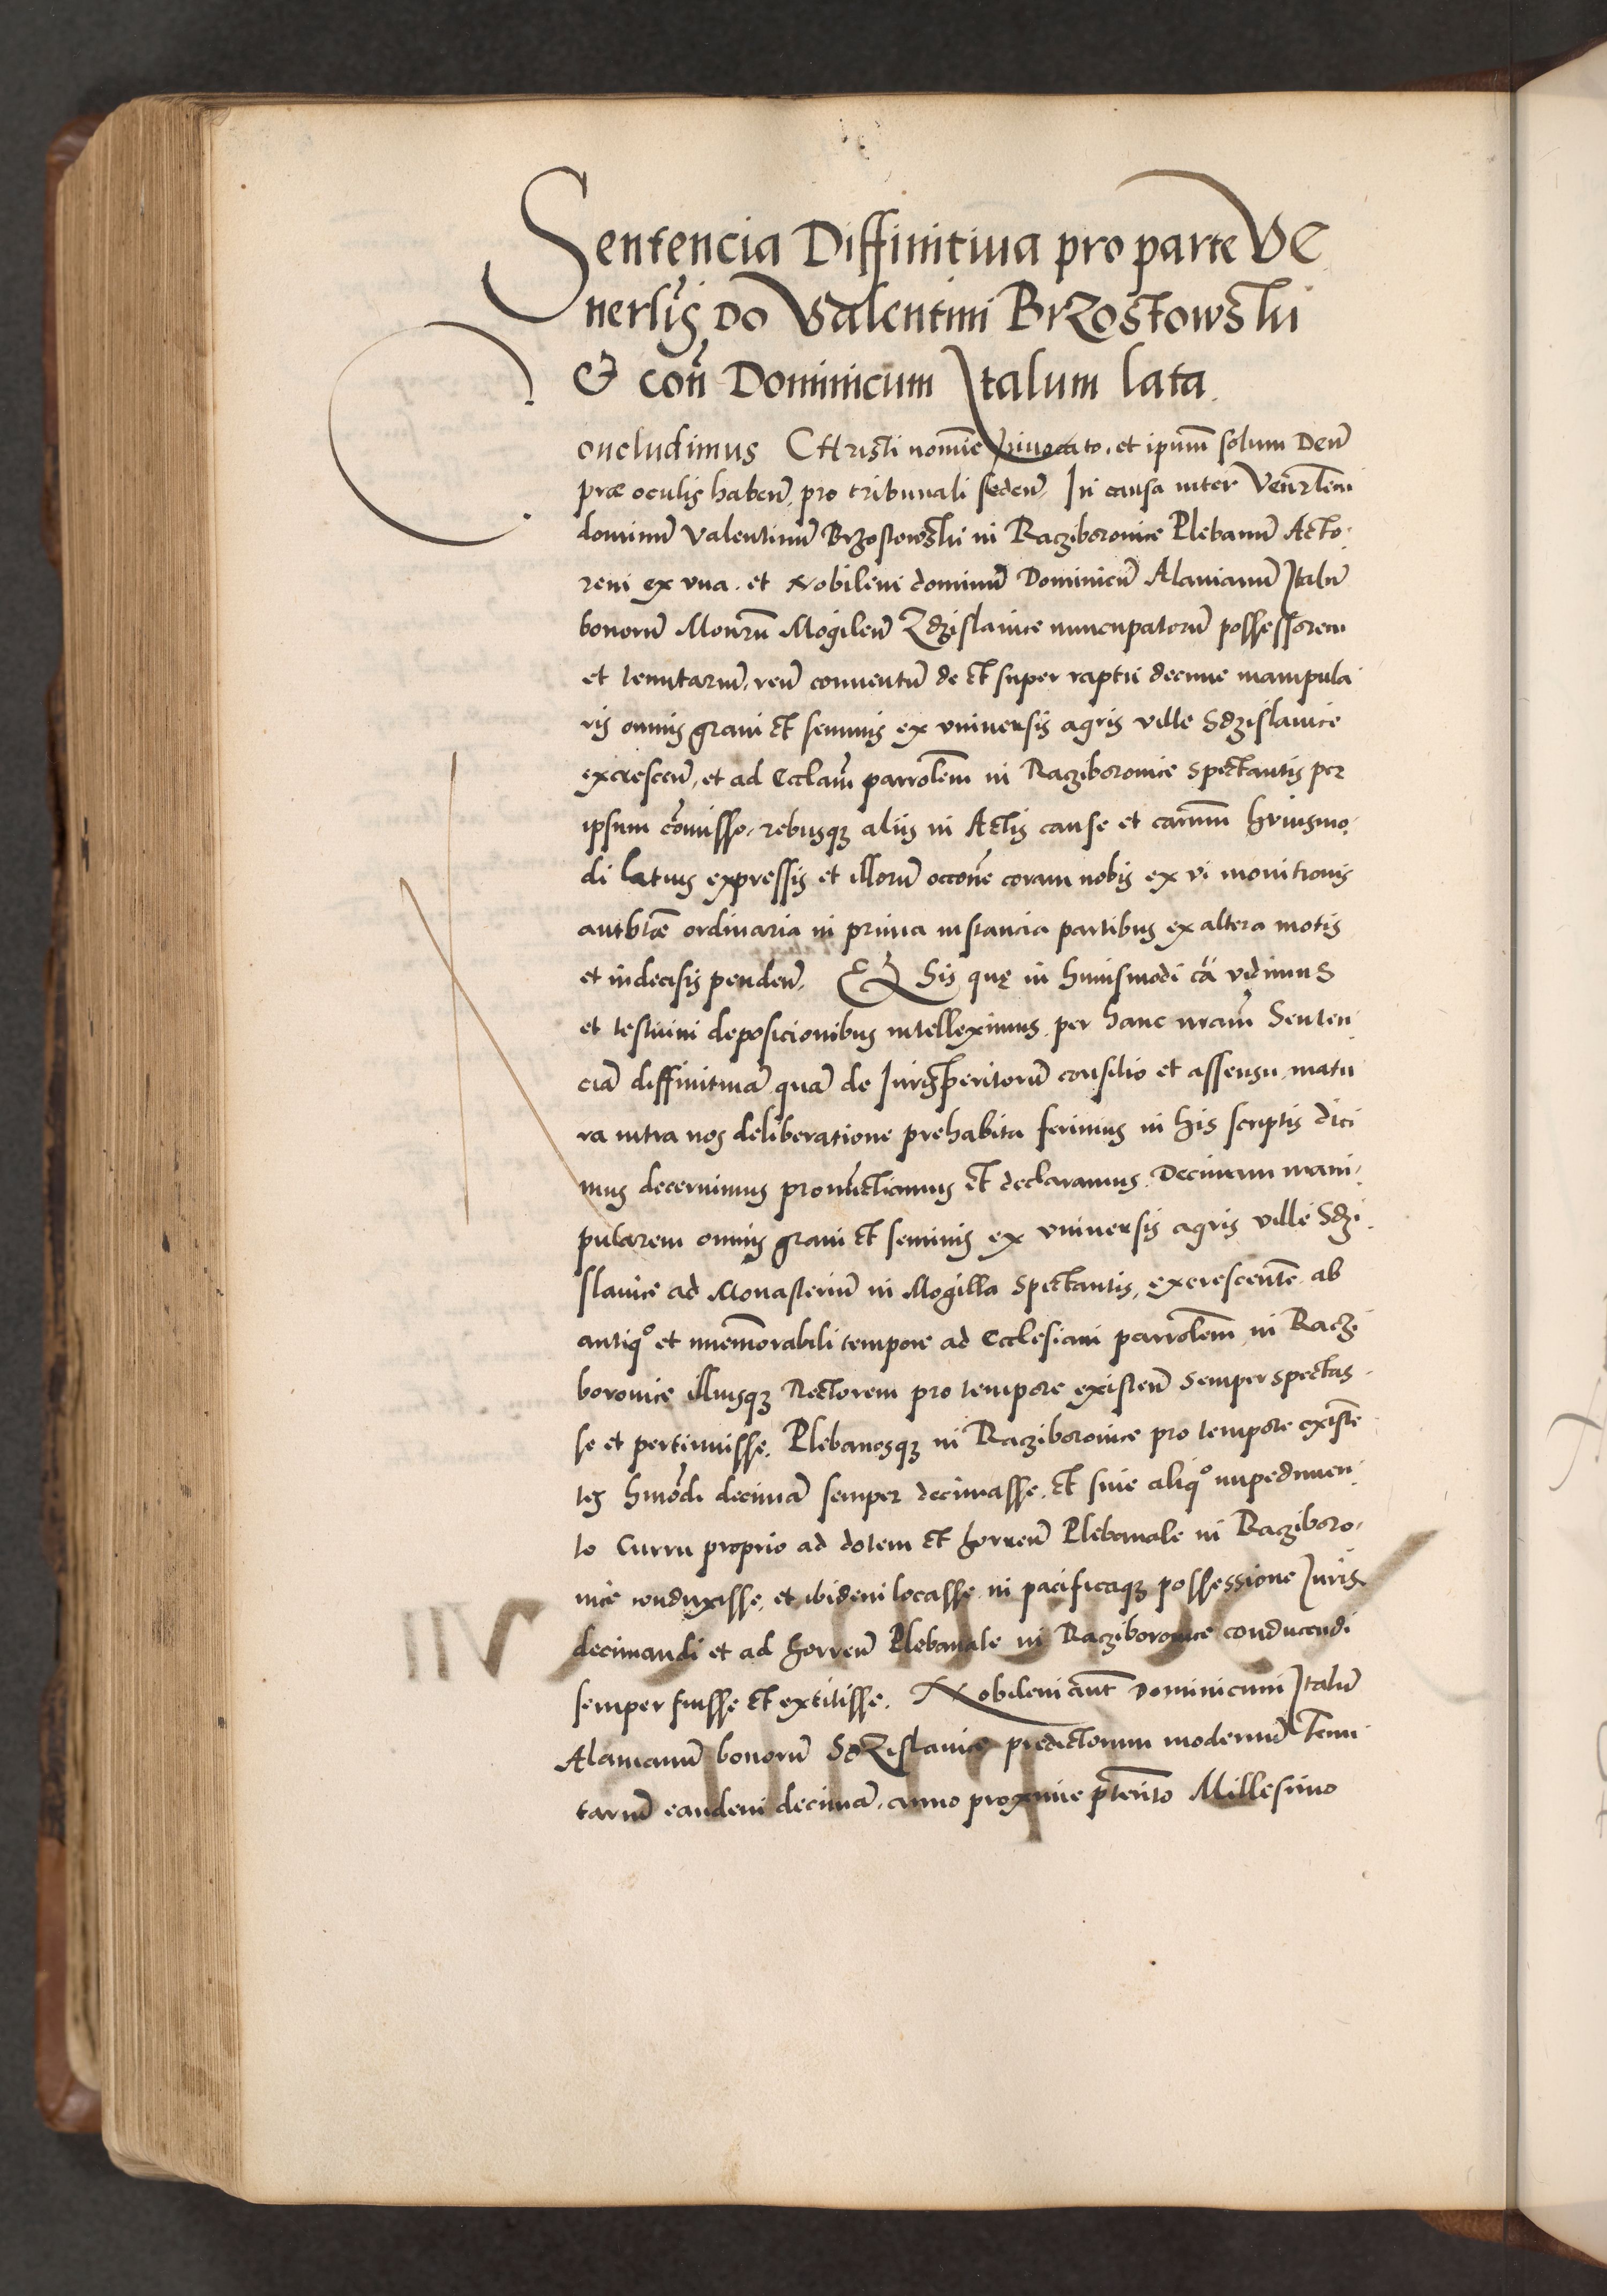 Sentencia Diffinitiua pro parte Ve
nerlis Do Valentini Brzostowski
& con Dominicum Italum lata.
Concludimus Christi nomine Inuocato, et ipsum solum Deu
præ oculis habeñ, pro tribunali sedeñ, In causa inter Venrlem
dominu Valentinu Brzostowski in Racziborouice Plebanu Acto
rem ex vna, et Nobilem dominu Dominicu Alamanu Italu
bonoru Monrii Mogileñ Zdzislauice nuncupatoru possessorem
et tenutariu, reu conuentu de et super raptu decime manipula
ris omnis grani et seminis ex vniuersis agris ville Sdzislauice
excresceñ, et ad Ecclam parrolem in Racziborouice spectantis per
ipsum comisso, rebusq; aliis in Actis cause et carumm huiusmo
di latius expressis et illoru occone coram nobis ex vi monitionis
autbtæ ordinaria in prima instancia partibus ex altera motis
et indecisis pendeñ, Ex his quę in huiusmodi ca vidimus
et testium deposicionibus intelleximus per hanc nram Senten
cia diffinitiua qua de Jurisperitoru consilio et assensu, matu
ra intra nos deliberatione prehabita ferimus in his scriptis dici
mus decernimus pronunctiamus et declaramus. Decimam mani
pularem omnis grani et seminis ex vniuersis agris ville Sdzi
slauice ad Monasteriu in Mogilla spectantis, excrescente ab
antiqo et inmemorabili tempore ad Ecclesiam parrolem in Raczi
borouice illiusq; Rectorem pro tempore existeñ semper spectas
se et pertinuisse, Plebanosq; in Racziborouice pro tempore existe
tes hmodi decima semper decimasse, et sine aliqo impedimen
to curru proprio ad dotem et horreu Plebanale in Racziboro
uice conduxisse, et ibidem locasse in pacificaq; possessione Juris
decimandi et ad horreu Plebanale in Racziborouice conducendi
semper fuisse et extitisse. Nobilem aut Dominicum Italu
Alamanu bonoru Sdzislauice predictorum modernu Tenu
tariu eandem decima, anno proxime pterito Millesimo